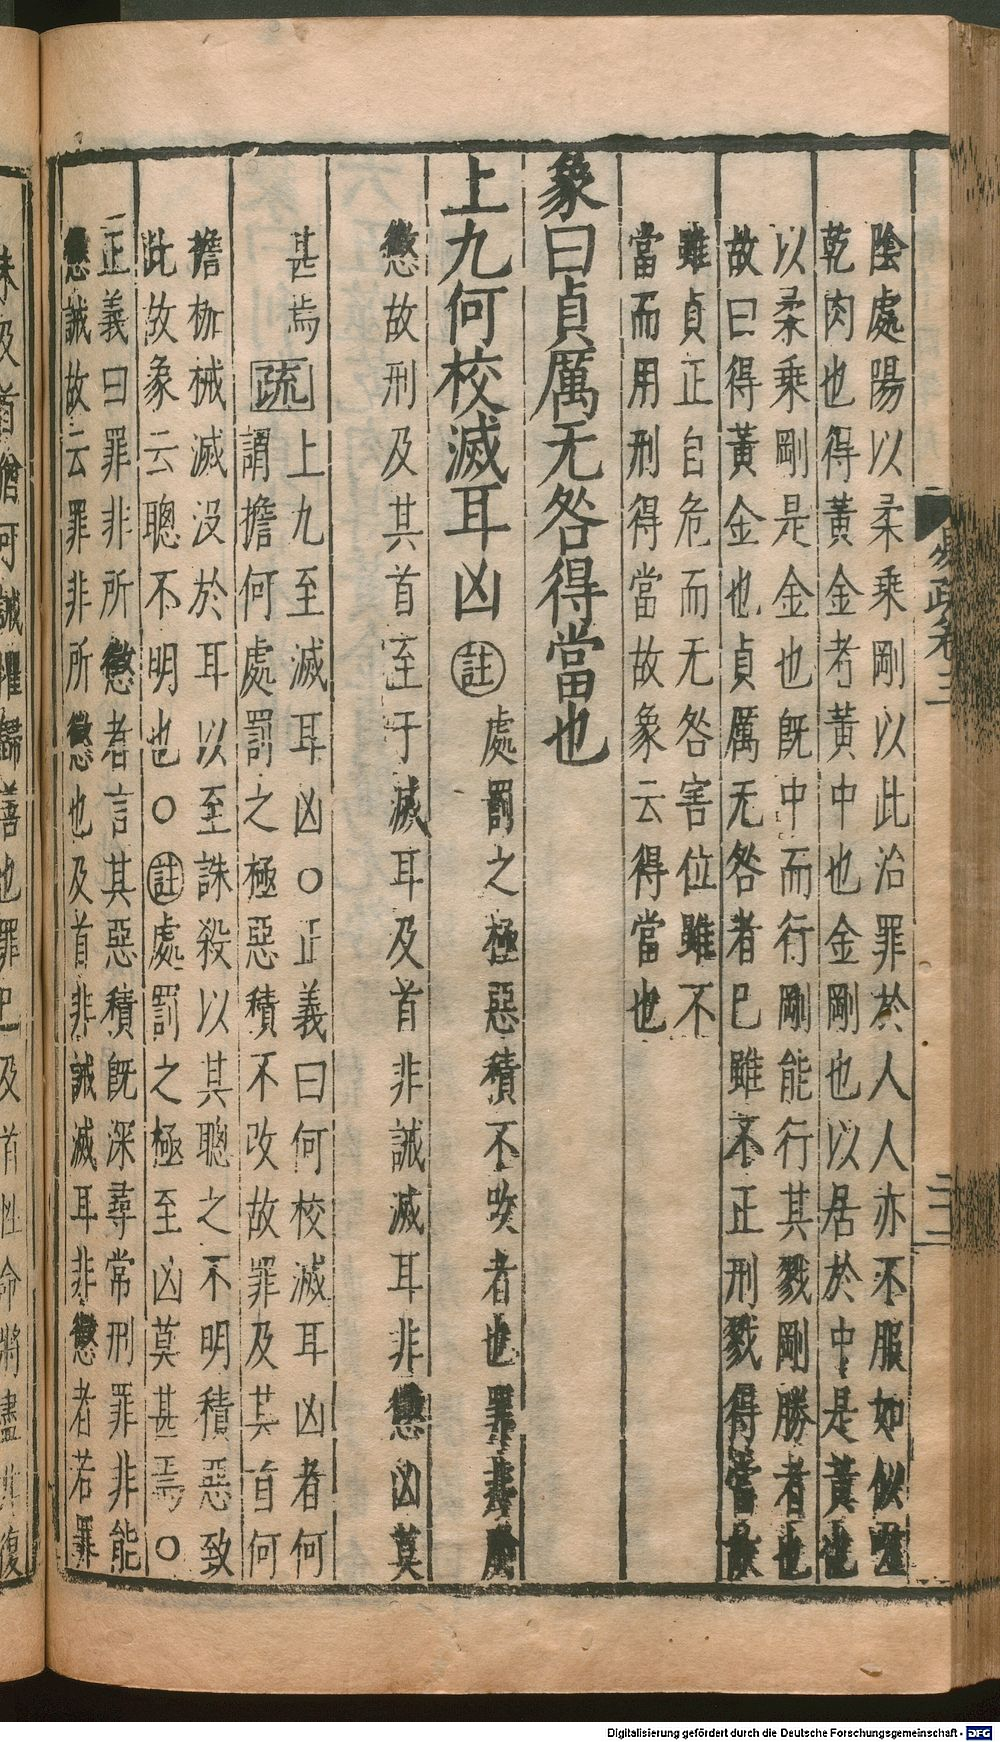 陰處陽以柔乘剛以此治罪於人人亦不服如似噬
乾肉也得黃金者黃中也金剛也以居於中是黃也
以柔乘剛是金也既中而行剛能行其戮剛勝者也
故曰得黃金也貞厲无咎者已雖不正刑戮得當故
雖貞正自危而无咎害位雖不
當而用刑得當故象云得當也
象曰貞厲无咎得當也
上九何校滅耳凶註
處罰之極惡積不攺者也罪非所
懲故刑及其首至于滅耳及首非誡滅耳非懲凶莫
甚焉疏上九至滅耳凶○正義曰何校滅耳凶者何
謂擔何處罰之極惡積不改故罪及其首何
擔枷械滅没於耳以至誅殺以其聰之不明積惡致
此故象云聰不明也○註處罰之極至凶莫甚焉○
正義曰罪非所懲者言其惡積既深尋常刑罪非能
懲誡故云罪非所懲也及首非誡滅耳非懲者若罪
易疏卷三
Digitalisierung gefördert durch die Deutsche Forschungsgemeinschaft - DFG